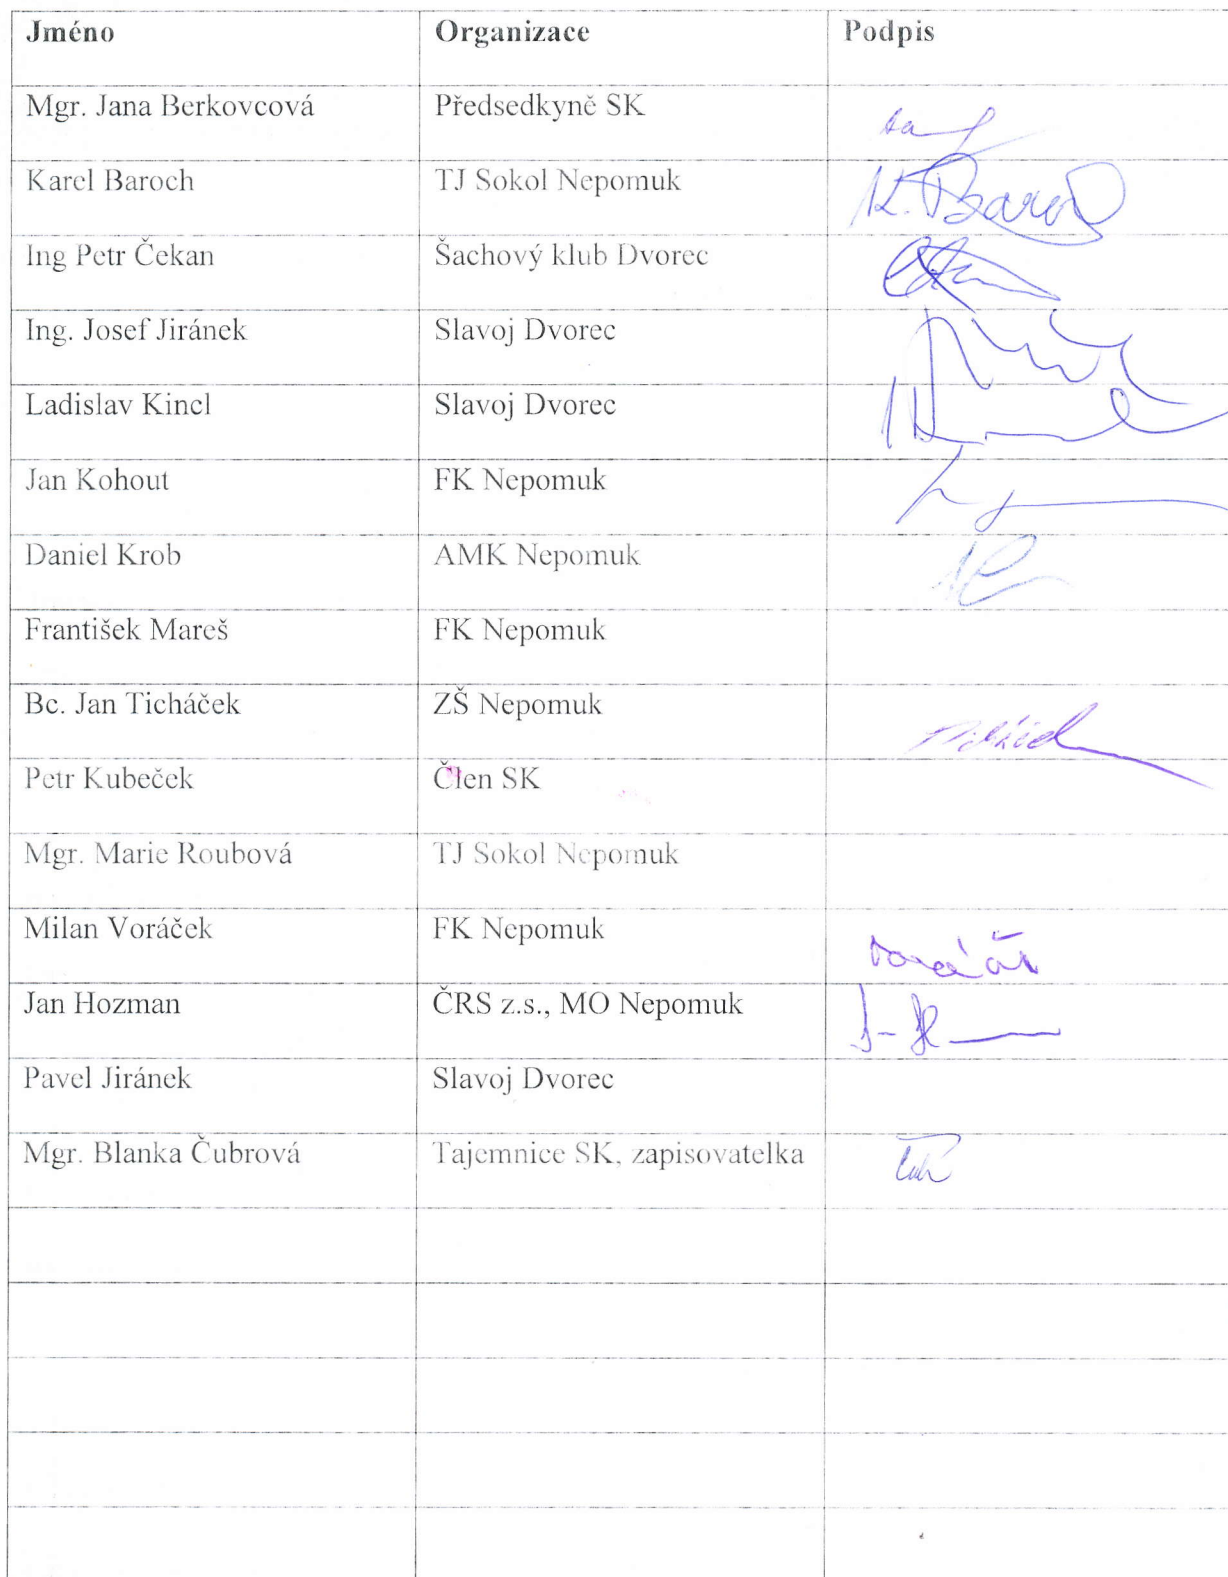 Jméno Organizace Podpis
Mgr. Jana Berkovcová Předsedkyně SK
Karel Baroch TJ Sokol Nepomuk K. Baroch
Ing Petr Čekan Šachový klub Dvorec
Ing. Josef Jiránek Slavoj Dvorec
Ladislav Kincl Slavoj Dvorec
Jan Kohout FK Nepomuk
Daniel Krob AMK Nepomuk
František Mareš FK Nepomuk
Bc. Jan Ticháček ZŠ Nepomuk
Petr Kubeček Člen SK
Mgr. Marie Roubová TJ Sokol Nepomuk
Milan Voráček FK Nepomuk
Jan Hozman ČRS z.s., MO Nepomuk
Pavel Jiránek Slavoj Dvorec
Mgr. Blanka Čubrová Tajemnice SK, zapisovatelka